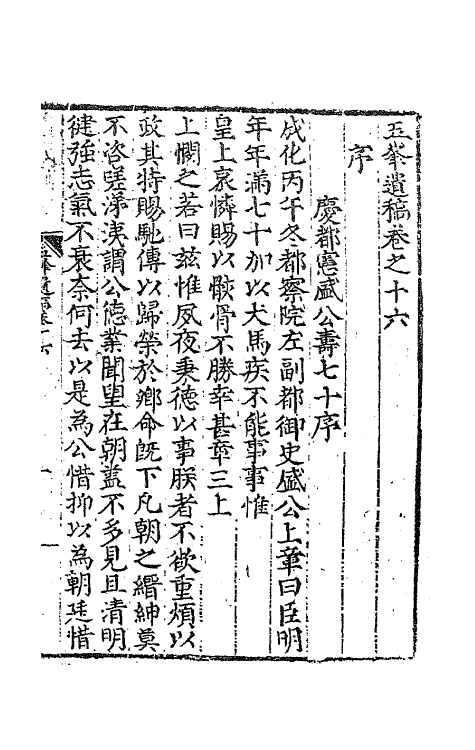 五峯遺稿卷之十六
序
慶都憲盛公壽七十序
成化丙午冬都察院左副都御史盛公上章曰臣明
年年滿七十加以犬馬疾不能事事惟
皇上哀憐賜以骸骨不勝幸甚章三上
上憫之若曰兹惟夙夜秉德以事朕者不欲重煩以
政其特賜馳傳以歸榮於鄉命旣下凡朝之縉紳莫
不咨嗟涕洟謂公德業聞望在朝盖不多見且清明
徤強志氣不衰奈何去以是為公惜抑以為朝廷惜